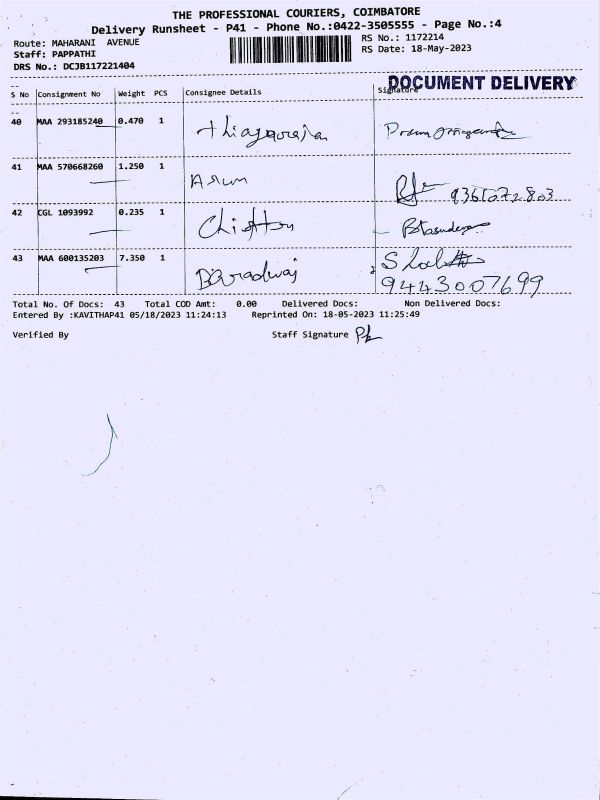 THE PROFESSIONAL COURIERS, COIMBATORE
Delivery Runsheet - P41 - Phone No.:0422-3505555 - Page No.:4
Route: MAHARANI AVENUE
RS No.: 1172214
Staff: PAPPATHI
RS Date: 18-May-2023
DRS No.: DCJB117221404
DOCUMENT DELIVERY
S No Consignment No Weight PCS Consignee Details Signature
40 MAA 293185240 0.470 1 thiagaraja
41 MAA 570668260 1.250 1 Arun 9361072803
42 CGL 1093992 0.235 1
43 MAA 600135203 7.350 1 9443007699
Total No. Of Docs: 43 Total COD Amt: 0.00 Delivered Docs: Non Delivered Docs:
Entered By :KAVITHAP41 05/18/2023 11:24:13 Reprinted On: 18-05-2023 11:25:49
Verified By Staff Signature